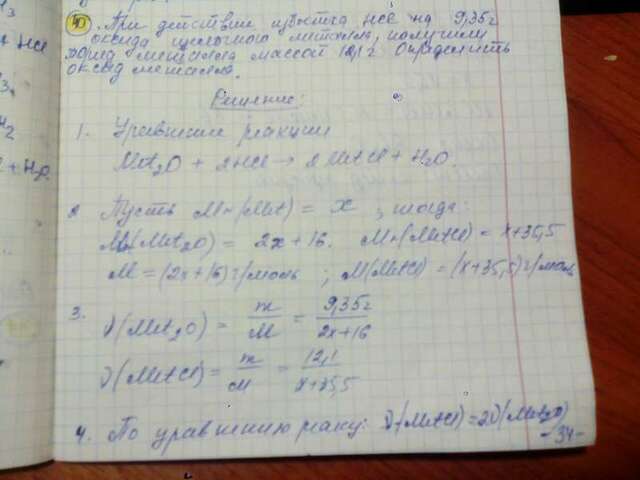 40. При действии избытка HCl на 9,35 г
оксида щелочного металла, получили
хлорид металла массой 12,1 г. Определить
оксид металла.
Решение:
1. Уравнение реакции
Met₂O + 2HCl → 2MetCl + H₂O.
2. Пусть Mr(Met) = x ; тогда:
Mr(Met₂O) = 2x+16. Mr(MetCl) = x+35,5
M = (2x+16) г/моль ; M(MetCl) = (x+35,5) г/моль
3. ν(Met₂O) = m/M = 9,35г/2x+16
ν(MetCl) = m/M = 12,1/x+35,5
4. По уравнению реакц: ν(MetCl) = 2ν(Met₂O)
-34-